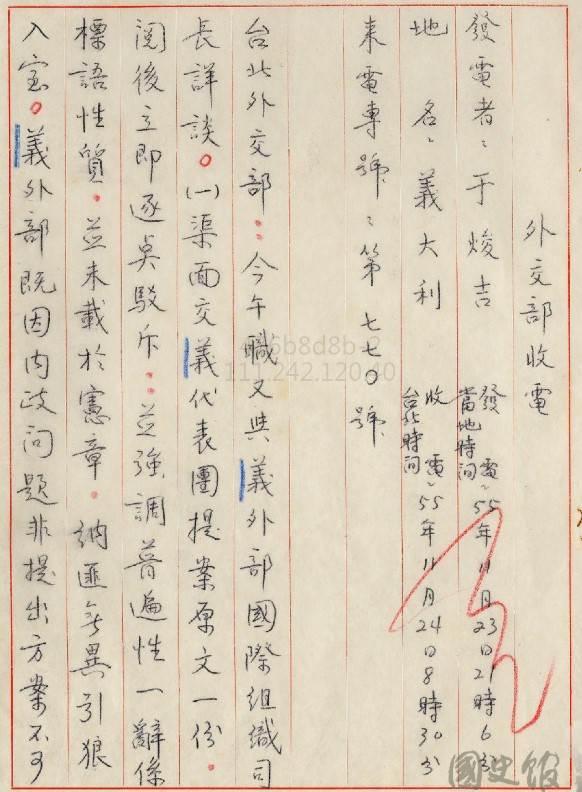 外交部收電
發電者：于焌吉
發電：55年11月23日21時6分
當地時間
地名：義大利
收電：55年11月24日8時30分
台北時間
來電專號：第七七〇號
台北外交部：今午職又與義外部國際組織司
長詳談。(一)渠面交義代表團提案原文一份。
閱後立即逐點駁斥：並強調普遍性一辭係
標語性質。並未載於憲章。納匪無異引狼
入室。義外部既因內政問題非提出方案不可
國史館
111.242.120.40